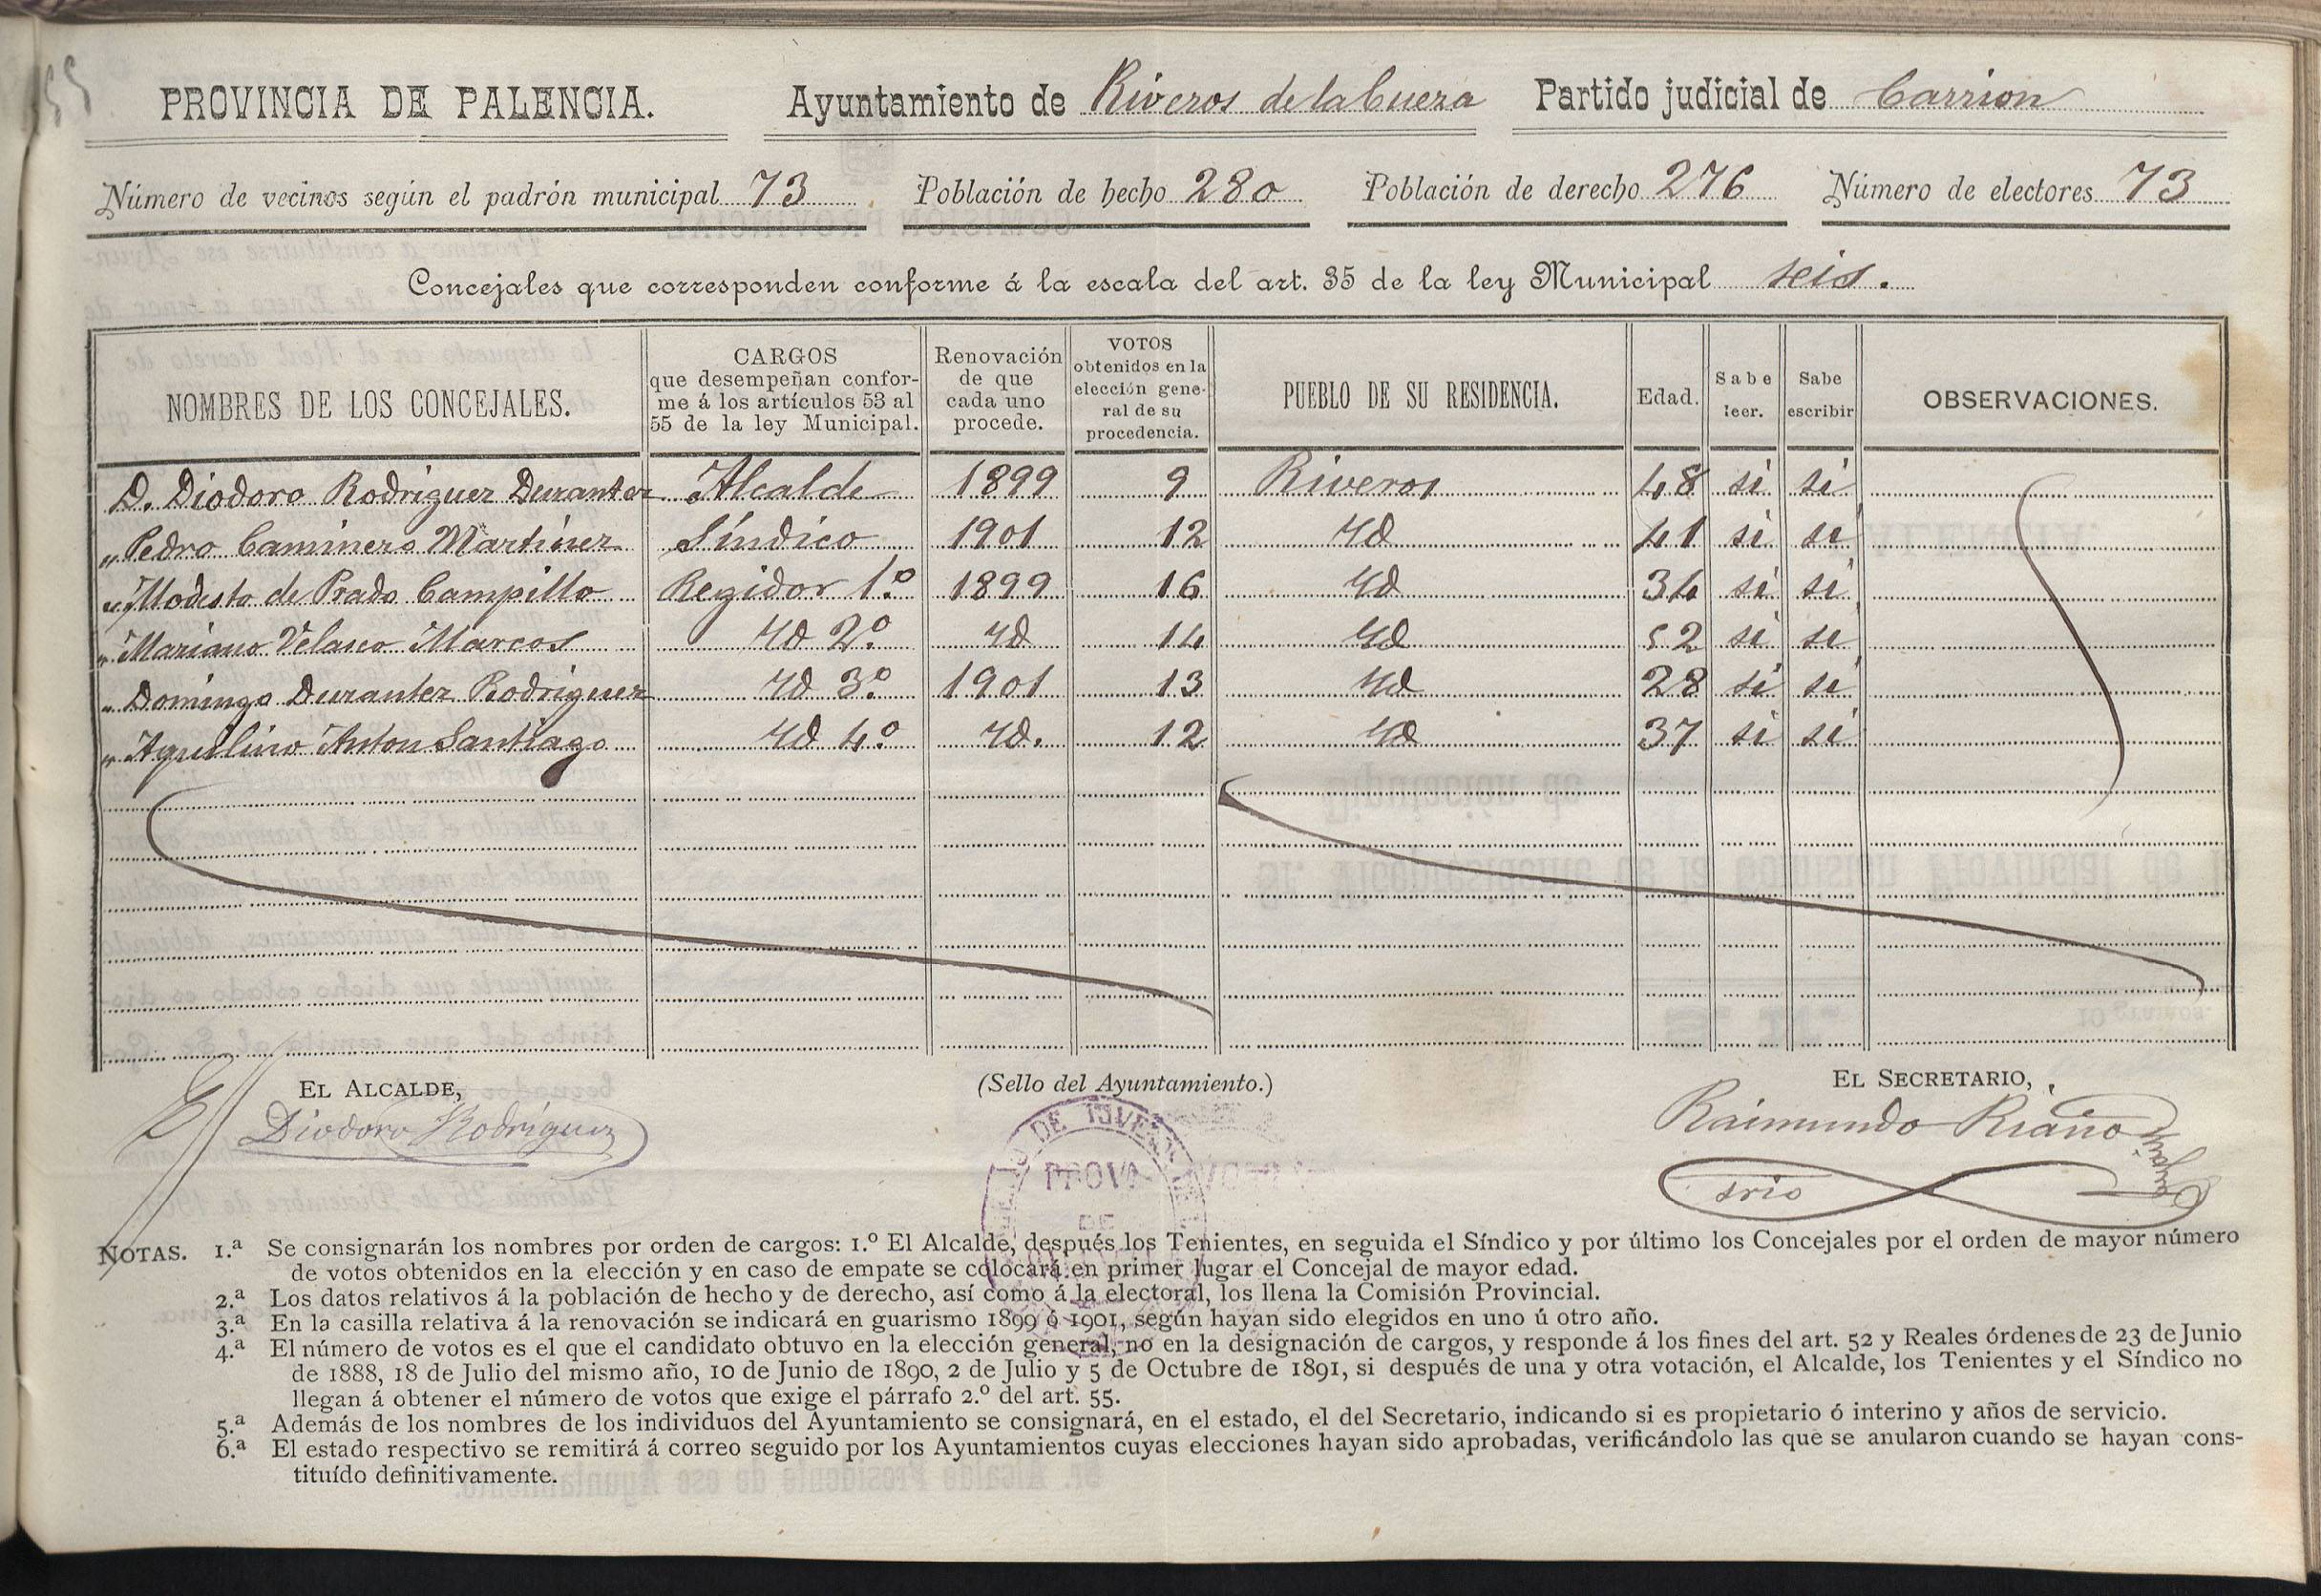 PROVINCIA DE PALENCIA. Ayuntamiento de Riveros de la Cueza Partido judicial de Carrion
Número de vecinos según el padrón municipal 73 Población de hecho 280 Población de derecho 276 Número de electores 73
Concejales que corresponden conforme á la escala del art. 35 de la ley Municipal seis.
NOMBRES DE LOS CONCEJALES. CARGOS que desempeñan conforme á los artículos 53 al 55 de la ley Municipal. Renovación de que cada uno procede. VOTOS obtenidos en la elección general de su procedencia. PUEBLO DE SU RESIDENCIA. Edad. Sabe leer. Sabe escribir OBSERVACIONES.
D. Diodoro Rodriguez Durantez Alcalde 1899 9 Riveros 48 si si
" Pedro Caminero Martinez Síndico 1901 12 Yd 41 si si
" Modesto de Prado Campillo Regidor 1.º 1899 16 Yd 34 si si
" Mariano Velasco Marcos Yd 2.º Yd 14 Yd 52 si si
" Domingo Durantez Rodriguez Yd 3.º 1901 13 Yd 28 si si
" Aquilino Anton Santiago Yd 4.º Yd. 12 Yd 37 si si
EL ALCALDE, (Sello del Ayuntamiento.) EL SECRETARIO,
Diodoro Rodriguez Raimundo Riaño
srio
PROVA
DE
NOTAS. 1.ª Se consignarán los nombres por orden de cargos: 1.º El Alcalde, después los Tenientes, en seguida el Síndico y por último los Concejales por el orden de mayor número
de votos obtenidos en la elección y en caso de empate se colocará en primer lugar el Concejal de mayor edad.
2.ª Los datos relativos á la población de hecho y de derecho, así como á la electoral, los llena la Comisión Provincial.
3.ª En la casilla relativa á la renovación se indicará en guarismo 1899 ó 1901, según hayan sido elegidos en uno ú otro año.
4.ª El número de votos es el que el candidato obtuvo en la elección general, no en la designación de cargos, y responde á los fines del art. 52 y Reales órdenes de 23 de Junio
de 1888, 18 de Julio del mismo año, 10 de Junio de 1890, 2 de Julio y 5 de Octubre de 1891, si después de una y otra votación, el Alcalde, los Tenientes y el Síndico no
llegan á obtener el número de votos que exige el párrafo 2.º del art. 55.
5.ª Además de los nombres de los individuos del Ayuntamiento se consignará, en el estado, el del Secretario, indicando si es propietario ó interino y años de servicio.
6.ª El estado respectivo se remitirá á correo seguido por los Ayuntamientos cuyas elecciones hayan sido aprobadas, verificándolo las que se anularon cuando se hayan cons-
tituído definitivamente.